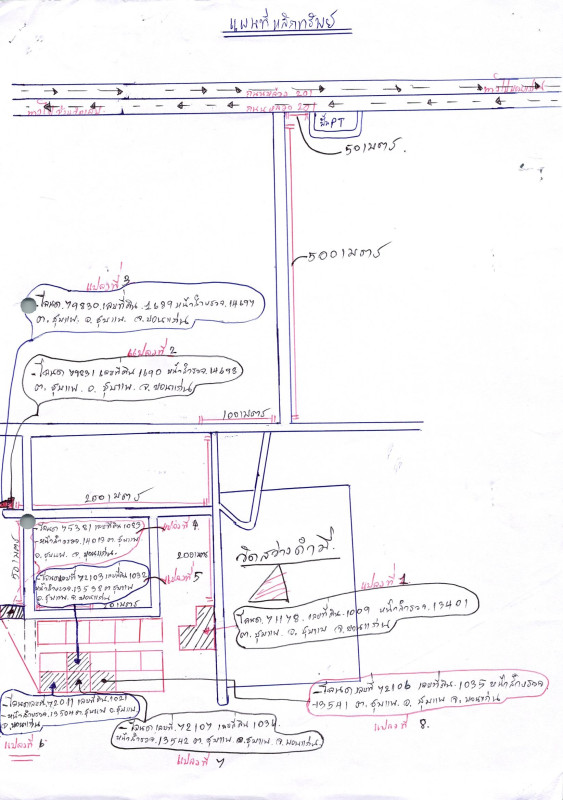 แผนที่หลักทรัพย์
ถนนหลวง 201
ถนนหลวง 201
ปั๊มPT
50เมตร.
500เมตร
แปลงที่ 3
-โฉนด.79830.เลขที่ดิน.1689 หน้าสำรวจ.14697
ต.ชุมแพ.อ.ชุมแพ.จ.ขอนแก่น
แปลงที่ 2
-โฉนด 79831 เลขที่ดิน 1690 หน้าสำรวจ.14698
ต.ชุมแพ.อ.ชุมแพ.จ.ขอนแก่น
100เมตร
200เมตร
-โฉนด 75381 เลขที่ดิน 1093
-หน้าสำรวจ.14019 ต.ชุมแพ
อ.ชุมแพ.จ.ขอนแก่น.
แปลงที่ 4
200เมตร
50เมตร
-โฉนดเลขที่ 72103 เลขที่ดิน 1032
หน้าสำรวจ.13538 ต.ชุมแพ
อ.ชุมแพ.จ.ขอนแก่น
แปลงที่ 5
วัดสว่างถ้ำมี
แปลงที่ 1
โฉนด.71178.เลขที่ดิน.1009 หน้าสำรวจ.13401
ต.ชุมแพ.อ.ชุมแพ.จ.ขอนแก่น
-โฉนดเลขที่ 72106 เลขที่ดิน.1035 หน้าสำรวจ
13541 ต.ชุมแพ.อ.ชุมแพ.จ.ขอนแก่น.
แปลงที่ 8.
-โฉนดเลขที่.72011 เลขที่ดิน.1021
-หน้าสำรวจ.13504 ต.ชุมแพ อ.ชุมแพ
จ.ขอนแก่น
แปลงที่ 6
-โฉนด เลขที่.72107 เลขที่ดิน 1036
หน้าสำรวจ.13542 ต.ชุมแพ.อ.ชุมแพ.จ.ขอนแก่น
แปลงที่ 7